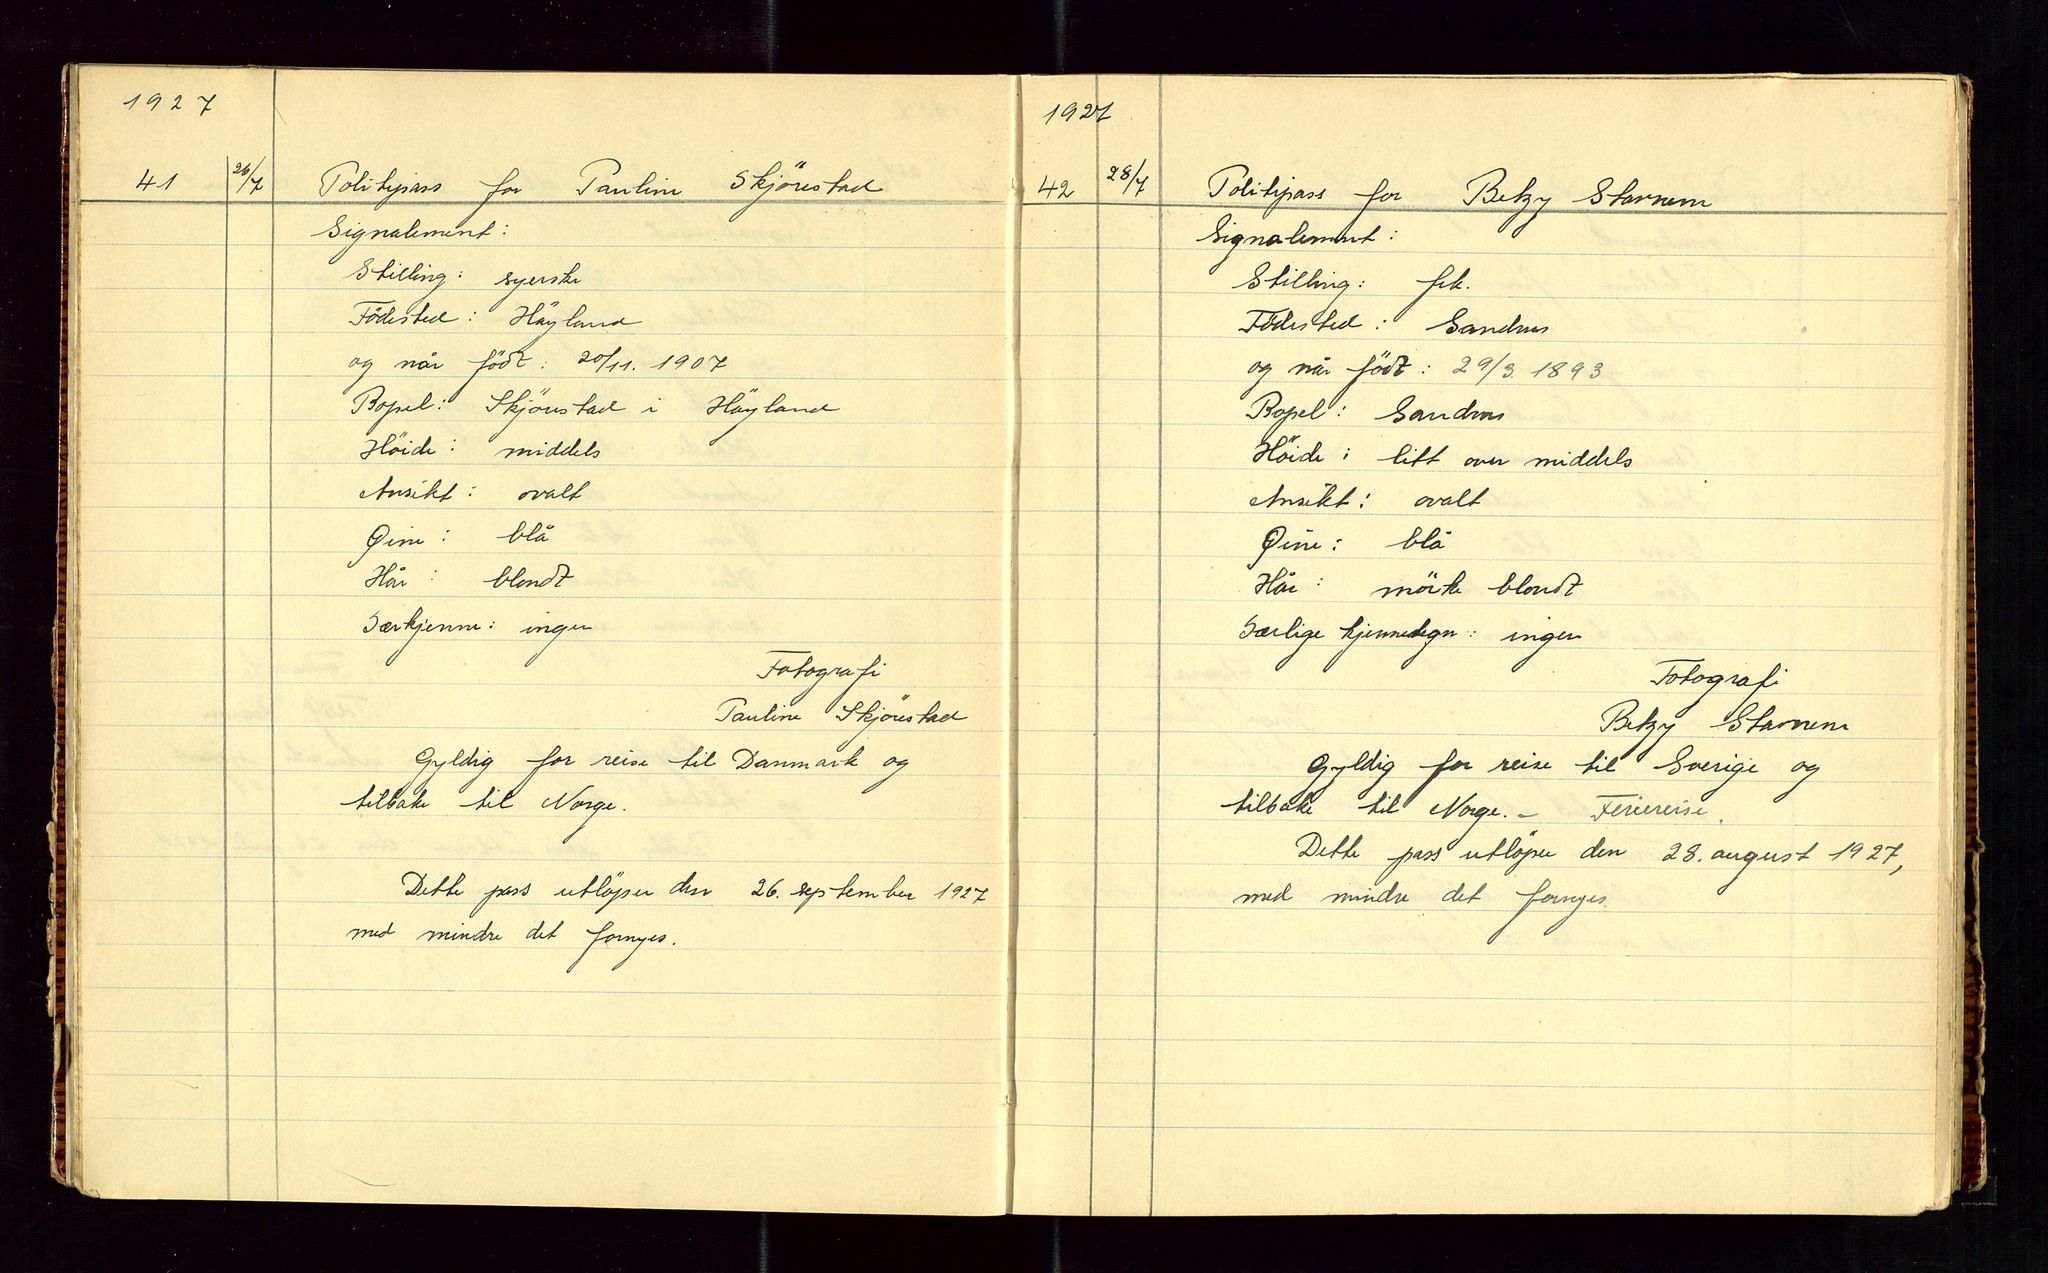 1927
41 26/7 Politipass for Pauline Skjörestad
Signalement:
Stilling: syerske
Födested: Höyland
og når födt: 20/11. 1907
Bopel: Skjörestad i Höyland
Höide: middels
Ansikt: ovalt
Øine: blå
Hår: blondt
Særkjenne: ingen
Fotografi
Pauline Skjörestad
Gyldig for reise til Danmark og
tilbake til Norge.
Dette pass utlöper den 26. september 1927
med mindre det fornyes.
1927
42 28/7 Politipass for Betzy Stavnem
Signalement:
Stilling: frk.
Födested: Sandnes
og når födt: 29/3. 1893
Bopel: Sandnes
Höide: litt over middels
Ansikt: ovalt
Øine: blå
Hår: mörke blondt
Særlige kjennetegn: ingen
Fotografi
Betzy Stavnem
Gyldig for reise til Sverige og
tilbake til Norge. - Feriereise.
Dette pass utlöper den 28. august 1927,
med mindre det fornyes.